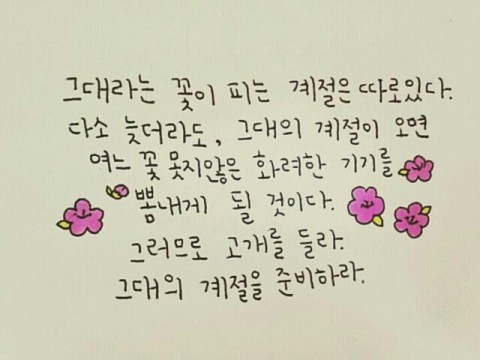 그대라는 꽃이 피는 계절은 따로있다.
다소 늦더라도, 그대의 계절이 오면
여느 꽃 못지않은 화려한 기기를
뽐내게 될 것이다.
그러므로 고개를 들라.
그대의 계절을 준비하라.